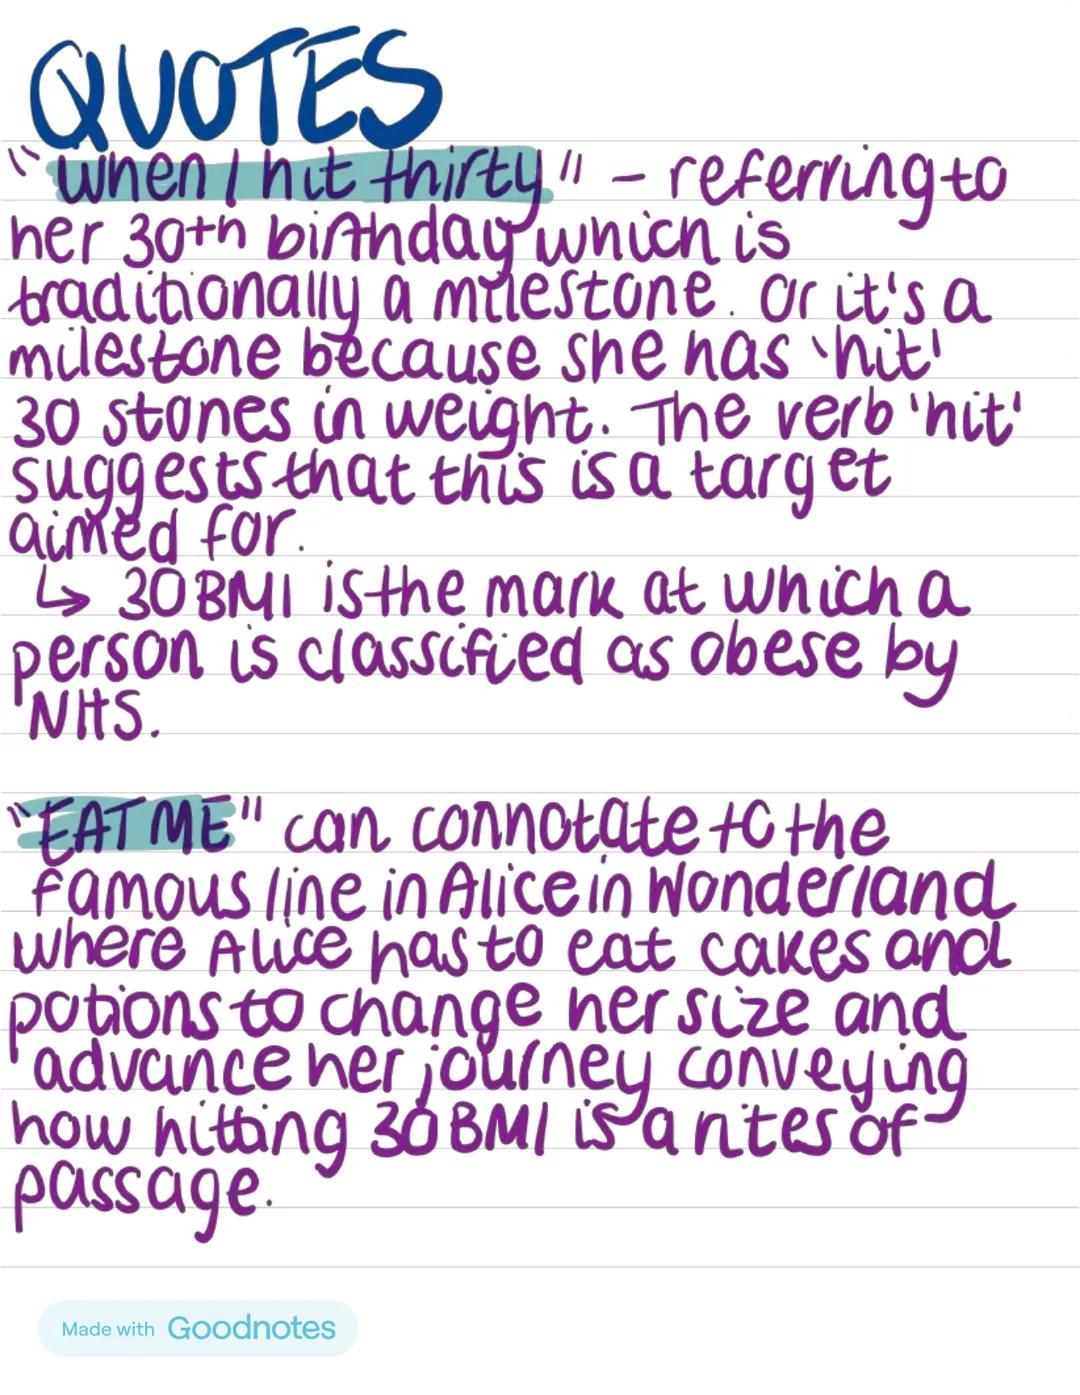 QUOTES
"When I hit thirty" - referring to
her 30th birthday which is
traditionally a milestone. Or it's a
milestone because she has 'hit'
30 stones in weight. The verb 'hit'
suggests that this is a target
aimed for.
↳ 30 BMI is the mark at which a
person is classified as obese by
NHS.
"EAT ME" can connotate to the
famous line in Alice in Wonderland
where Alice has to eat cakes and
potions to change her size and
advance her journey conveying
how hitting 30 BMI is a rites of
passage.
Made with Goodnotes